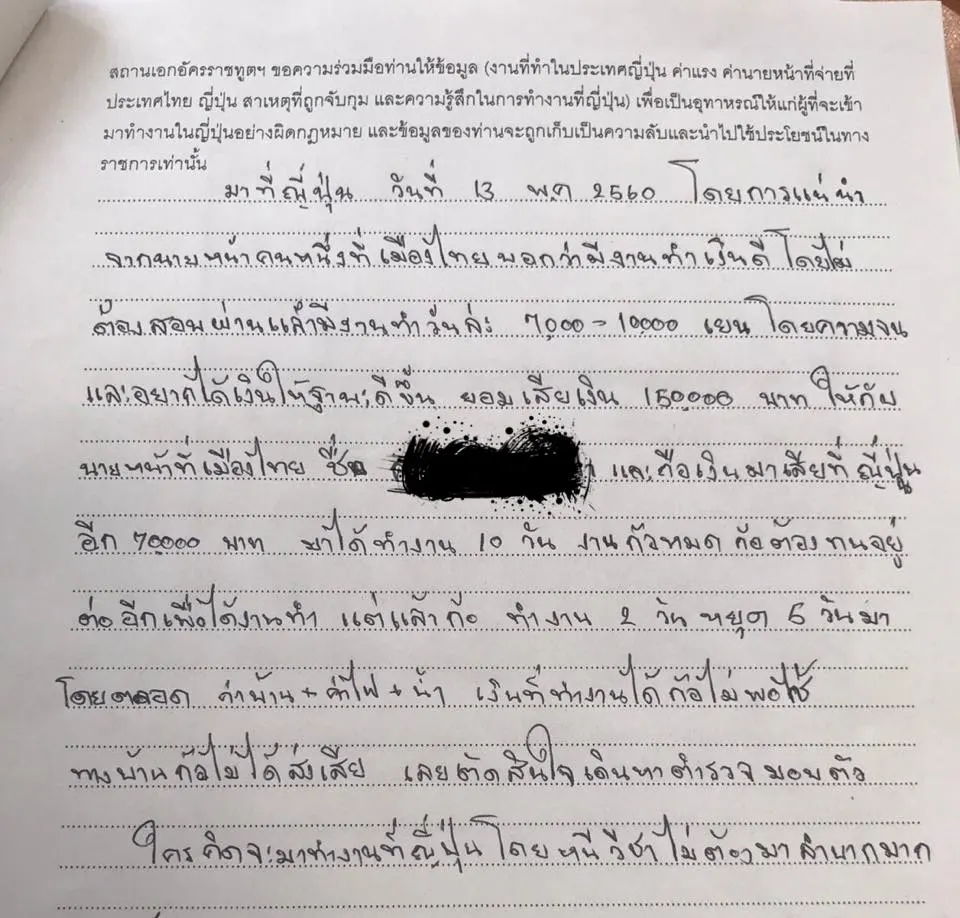 สถานเอกอัครราชทูตฯ ขอความร่วมมือท่านให้ข้อมูล (งานที่ทำในประเทศญี่ปุ่น ค่าแรง ค่านายหน้าที่จ่ายที่
ประเทศไทย ญี่ปุ่น สาเหตุที่ถูกจับกุม และความรู้สึกในการทำงานที่ญี่ปุ่น) เพื่อเป็นอุทาหรณ์ให้แก่ผู้ที่จะเข้า
มาทำงานในญี่ปุ่นอย่างผิดกฎหมาย และข้อมูลของท่านจะถูกเก็บเป็นความลับและนำไปใช้ประโยชน์ในทาง
ราชการเท่านั้น
มาที่ญี่ปุ่น วันที่ 13 พ.ค 2560 โดยการแน่นำ
จากนายหน้าคนหนึ่งที่เมืองไทยบอกว่ามีงานทำเงินดีโดยไม่
ต้องสอบผ่านแล้วมีงานทำวันละ 7000-10000 เยน โดยความจน
และอยากได้เงินให้ฐานะดีขึ้น ยอมเสียเงิน 150000 บาท ให้กับ
นายหน้าที่เมืองไทย ชื่อ และถือเงินมาเสียที่ญี่ปุ่น
อีก 70000 บาท มาได้ทำงาน 10 วัน งานก้อหมด ก้อต้องทนอยู่
ต่ออีกเพื่อได้งานทำ แต่แล้วก้อ ทำงาน 2 วัน หยุด 5 วันมา
โดยตลอด ค่าบ้าน + ค่าไฟ + น้ำ เงินที่ทำงานได้ก้อไม่พอใช้
ทางบ้านก้อไม่ได้ส่งเสีย เลยตัดสินใจเดินหาตำรวจมอบตัว
ใครคิดจะมาทำงานที่ญี่ปุ่นโดยหนีวีซ่าไม่ต้องมาลำบากมาก